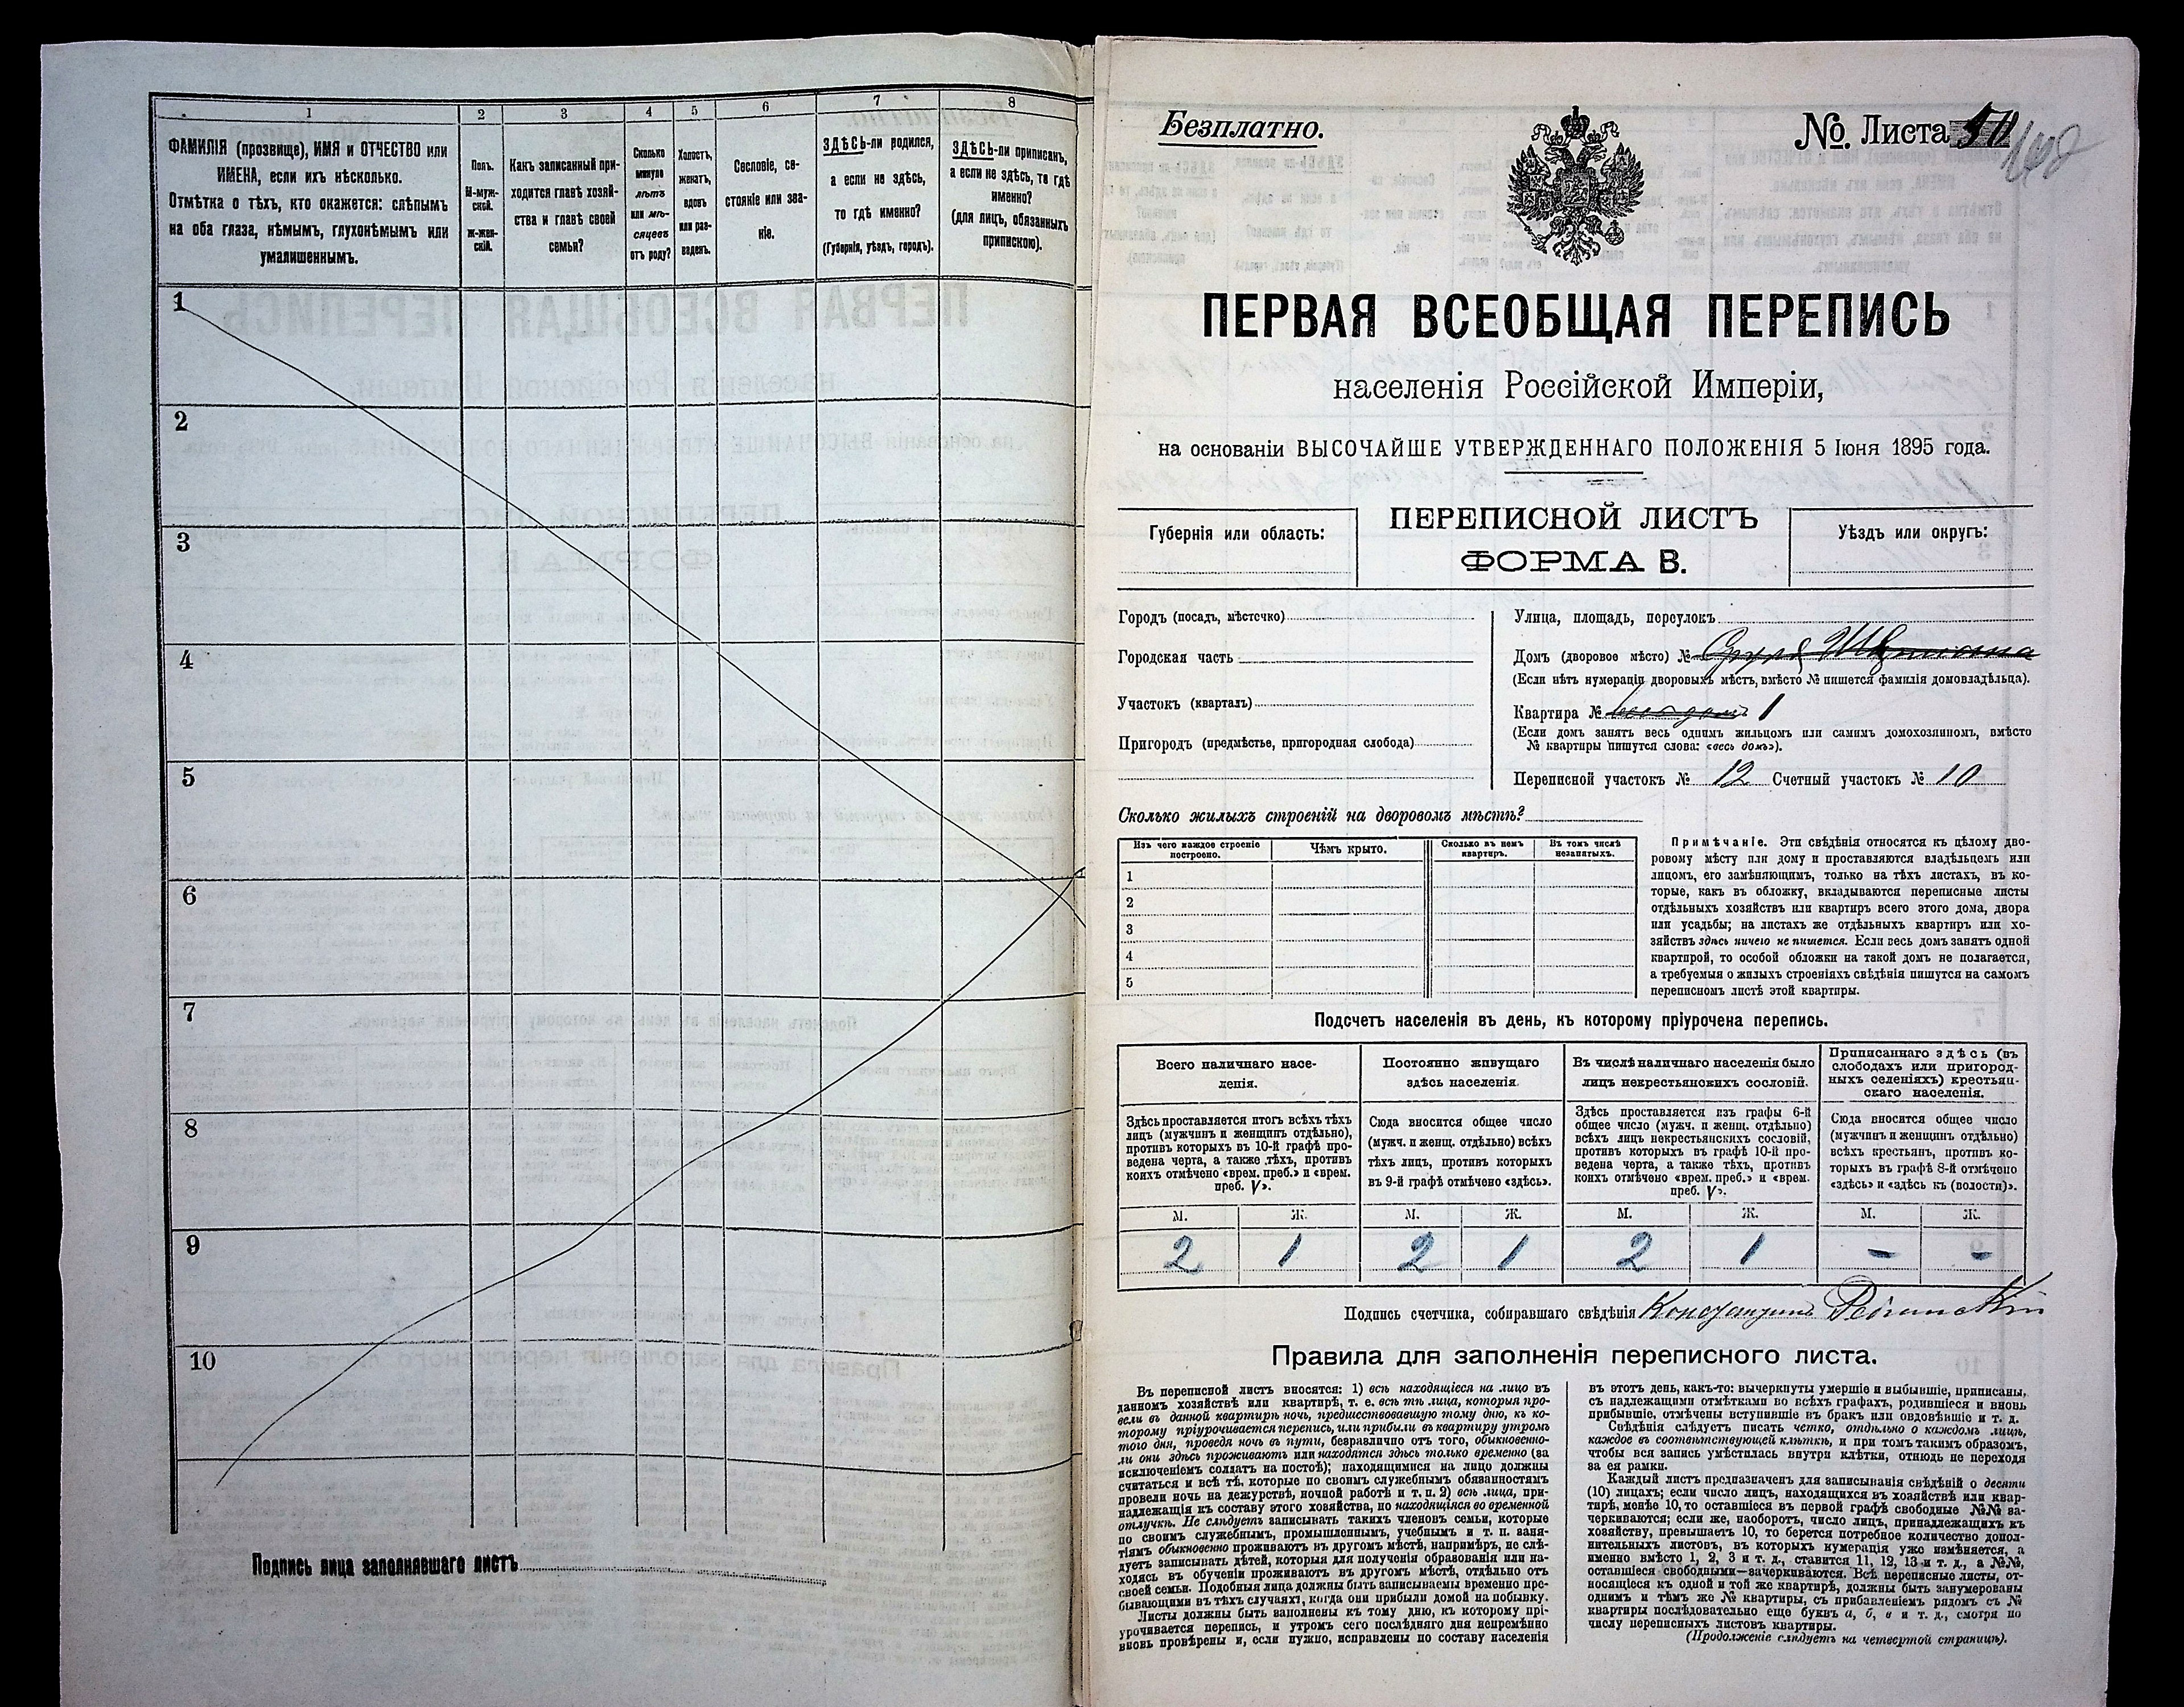 1
2
3
4
5
6
7
8
ФАМИЛІЯ (прозвище), ИМЯ и ОТЧЕСТВО или
ИМЕНА, если ихъ нѣсколько.
Отмѣтка о тѣхъ, кто окажется: слѣпымъ
на оба глаза, нѣмымъ, глухонѣмымъ или
умалишеннымъ.
Полъ.
М-муж-
ской.
Ж-жен-
скій.
Какъ записанный при-
ходится главѣ хозяй-
ства и главѣ своей
семьи?
Сколько
минуло
лѣтъ
или мѣ-
сяцевъ
отъ роду?
Холостъ,
женатъ,
вдовъ
или раз-
веденъ.
Сословіе, со-
стояніе или зва-
ніе.
ЗДѢСЬ-ли родился,
а если не здѣсь,
то гдѣ именно?
(Губернія, уѣздъ, городъ).
ЗДѢСЬ-ли приписанъ,
а если не здѣсь, то гдѣ
именно?
(для лицъ, обязанныхъ
припискою).
1
2
3
4
5
6
7
8
9
10
Подпись лица заполнявшаго листъ
Безплатно.
№ Листа
ПЕРВАЯ ВСЕОБЩАЯ ПЕРЕПИСЬ
населенія Россійской Имперіи,
на основаніи ВЫСОЧАЙШЕ УТВЕРЖДЕННАГО ПОЛОЖЕНІЯ 5 Іюня 1895 года.
Губернія или область:
ПЕРЕПИСНОЙ ЛИСТЪ
ФОРМА В.
Уѣздъ или округъ:
Городъ (посадъ, мѣстечко)
Городская часть
Участокъ (кварталъ)
Пригородъ (предмѣстье, пригородная слобода)
Улица, площадь, переулокъ
Домъ (дворовое мѣсто) №
(Если нѣтъ нумераціи дворовыхъ мѣстъ, вмѣсто № пишется фамилія домовладѣльца).
Квартира № весь домъ 1
(Если домъ занятъ весь однимъ жильцомъ или самимъ домохозяиномъ, вмѣсто
№ квартиры пишутся слова: «весь домъ»).
Переписной участокъ № 12 Счетный участокъ № 10
Сколько жилыхъ строеній на дворовомъ мѣстѣ?
Изъ чего каждое строеніе
построено.
Чѣмъ крыто.
Сколько въ немъ
квартиръ.
Въ томъ числѣ
незанятыхъ.
1
2
3
4
5
Примѣчаніе. Эти свѣдѣнія относятся къ цѣлому дво-
ровому мѣсту или дому и проставляются владѣльцемъ или
лицомъ, его замѣняющимъ, только на тѣхъ листахъ, въ ко-
торые, какъ въ обложку, вкладываются переписные листы
отдѣльныхъ хозяйствъ или квартиръ всего этого дома, двора
или усадьбы; на листахъ же отдѣльныхъ квартиръ или хо-
зяйствъ здѣсь ничего не пишется. Если весь домъ занятъ одной
квартирой, то особой обложки на такой домъ не полагается,
а требуемыя о жилыхъ строеніяхъ свѣдѣнія пишутся на самомъ
переписномъ листѣ этой квартиры.
Подсчетъ населенія въ день, къ которому пріурочена перепись.
Всего наличнаго насе-
ленія.
Постоянно живущаго
здѣсь населенія.
Въ числѣ наличнаго населенія было
лицъ некрестьянскихъ сословій.
Приписаннаго здѣсь (въ
слободахъ или пригород-
ныхъ селеніяхъ) крестьян-
скаго населенія.
Здѣсь проставляется итогъ всѣхъ тѣхъ
лицъ (мужчинъ и женщинъ отдѣльно),
противъ которыхъ въ 10-й графѣ про-
ведена черта, а также тѣхъ, противъ
коихъ отмѣчено «врем. преб.» и «врем.
преб. V».
Сюда вносится общее число
(мужч. и женщ. отдѣльно) всѣхъ
тѣхъ лицъ, противъ которыхъ
въ 9-й графѣ отмѣчено «здѣсь».
Здѣсь проставляется изъ графы 6-й
общее число (мужч. и женщ. отдѣльно)
всѣхъ лицъ некрестьянскихъ сословій,
противъ которыхъ въ графѣ 10-й про-
ведена черта, а также тѣхъ, противъ
коихъ отмѣчено «врем. преб.» и «врем.
преб. V».
Сюда вносится общее число
(мужчинъ и женщинъ отдѣльно)
всѣхъ крестьянъ, противъ ко-
торыхъ въ графѣ 8-й отмѣчено
«здѣсь» и «здѣсь къ (волости)».
М. Ж. М. Ж. М. Ж. М. Ж.
2 1 2 1 2 1 - -
Подпись счетчика, собиравшаго свѣдѣнія Константинъ
Правила для заполненія переписного листа.
Въ переписной листъ вносятся: 1) всѣ находящіеся на лицо въ
данномъ хозяйствѣ или квартирѣ, т. е. всѣ тѣ лица, которыя про-
вели въ данной квартирѣ ночь, предшествовавшую тому дню, къ ко-
торому пріурочивается перепись, или прибыли въ квартиру утромъ
того дня, проведя ночь въ пути, безразлично отъ того, обыкновенно-
ли они здѣсь проживаютъ или находятся здѣсь только временно (за
исключеніемъ солдатъ на постоѣ); находящимися на лицо должны
считаться и всѣ тѣ, которые по своимъ служебнымъ обязанностямъ
провели ночь на дежурствѣ, ночной работѣ и т. п. 2) всѣ лица, при-
надлежащія къ составу этого хозяйства, но находящіяся во временной
отлучкѣ. Не слѣдуетъ записывать такихъ членовъ семьи, которые
по своимъ служебнымъ, промышленнымъ, учебнымъ и т. п. заня-
тіямъ обыкновенно проживаютъ въ другомъ мѣстѣ, напримѣръ, не слѣ-
дуетъ записывать дѣтей, которыя для полученія образованія или на-
ходясь въ обученіи проживаютъ въ другомъ мѣстѣ, отдѣльно отъ
своей семьи. Подобныя лица должны быть записываемы временно пре-
бывающими въ тѣхъ случаяхъ, когда они прибыли домой на побывку.
Листы должны быть заполнены къ тому дню, къ которому прі-
урочивается перепись, и утромъ сего послѣдняго дня непремѣнно
вновь провѣрены и, если нужно, исправлены по составу населенія
въ этотъ день, какъ-то: вычеркнуты умершіе и выбывшіе, приписаны,
съ надлежащими отмѣтками во всѣхъ графахъ, родившіеся и вновь
прибывшіе, отмѣчены вступившіе въ бракъ или овдовѣвшіе и т. д.
Свѣдѣнія слѣдуетъ писать четко, отдѣльно о каждомъ лицѣ,
каждое въ соотвѣтствующей клѣткѣ, и при томъ такимъ образомъ,
чтобы вся запись умѣстилась внутри клѣтки, отнюдь не переходя
за ея рамки.
Каждый листъ предназначенъ для записыванія свѣдѣній о десяти
(10) лицахъ; если число лицъ, находящихся въ хозяйствѣ или квар-
тирѣ, менѣе 10, то оставшіеся въ первой графѣ свободные №№ за-
черкиваются; если же, наоборотъ, число лицъ, принадлежащихъ къ
хозяйству, превышаетъ 10, то берется потребное количество допол-
нительныхъ листовъ, въ которыхъ нумерація уже измѣняется, а
именно вмѣсто 1, 2, 3 и т. д., ставится 11, 12, 13 и т. д., а №№,
оставшіеся свободными—зачеркиваются. Всѣ переписные листы, от-
носящіеся къ одной и той же квартирѣ, должны быть занумерованы
однимъ и тѣмъ же № квартиры, съ прибавленіемъ рядомъ съ №
квартиры послѣдовательно еще буквъ а, б, в и т. д., смотря по
числу переписныхъ листовъ квартиры.
(Продолженіе слѣдуетъ на четвертой страницѣ).